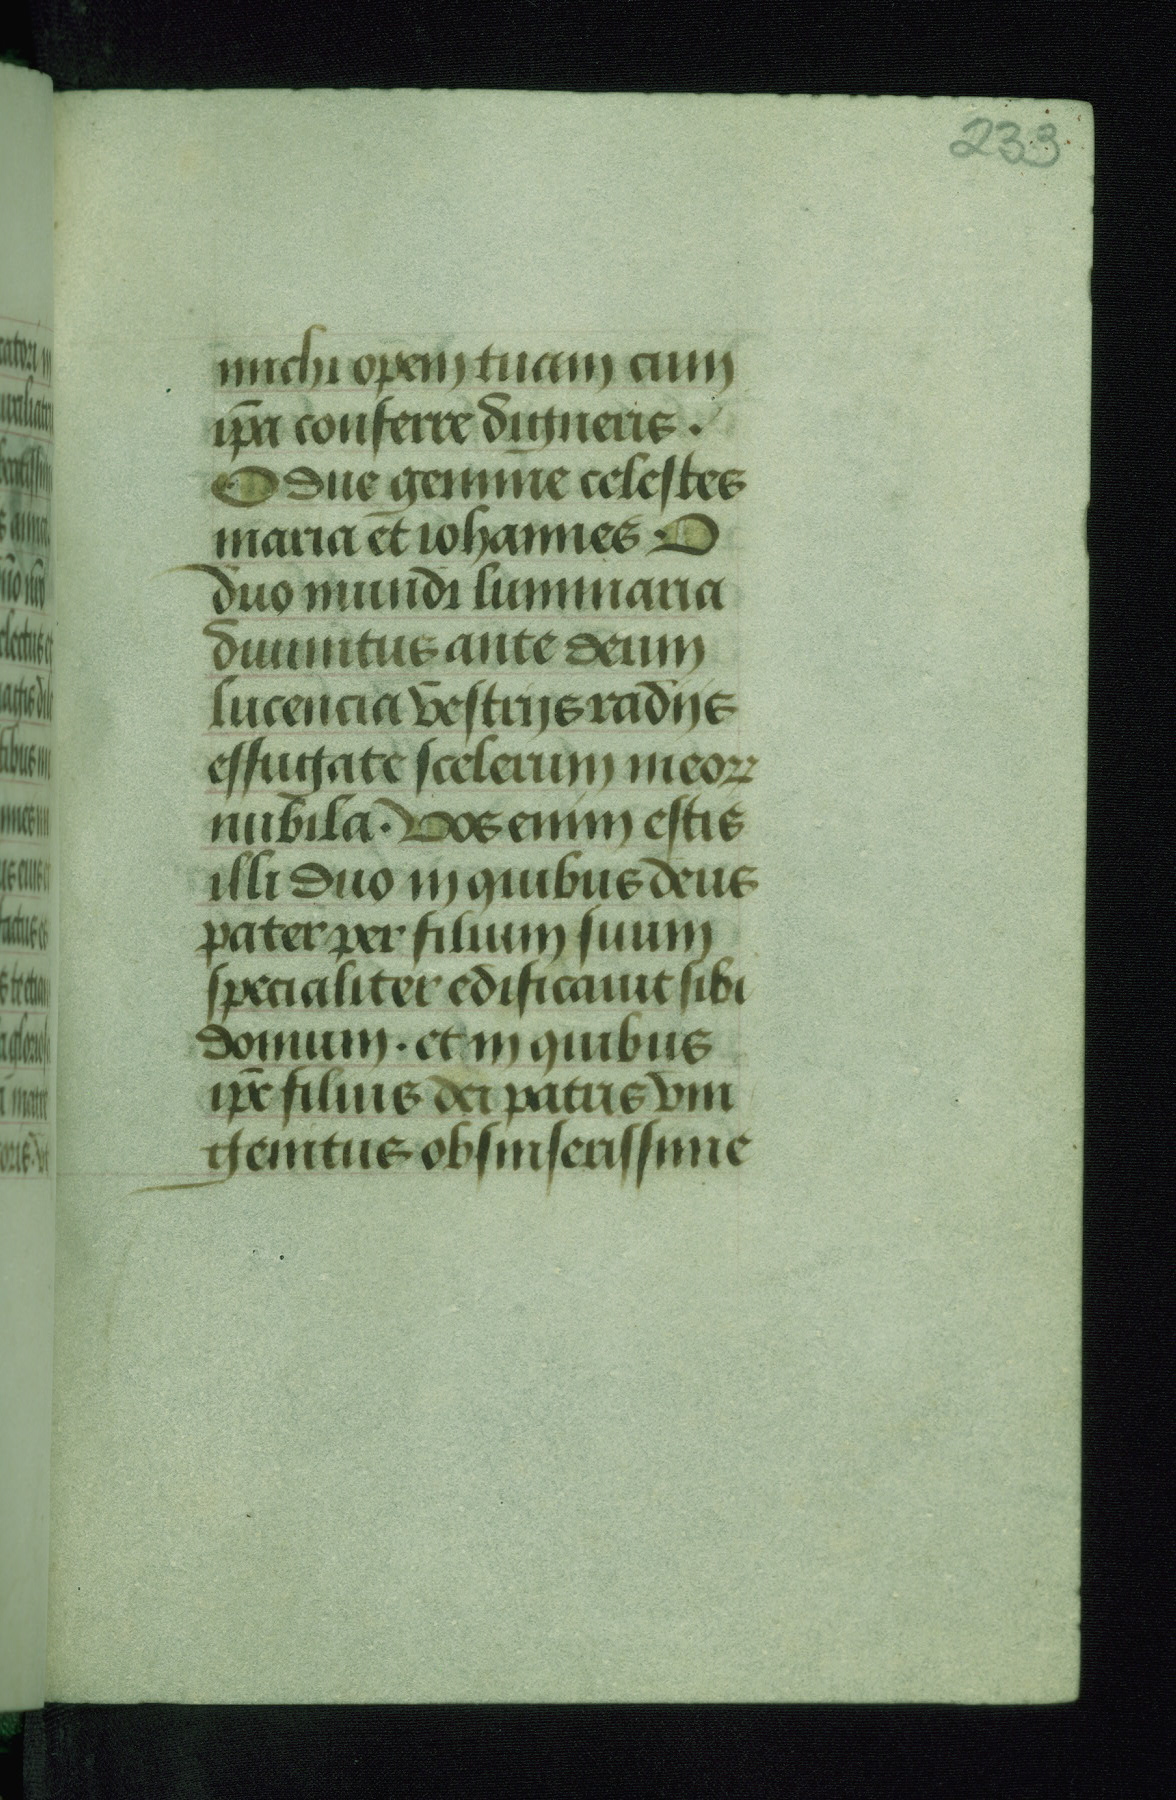 233
michi opem tuam cum
ip̄a conferre digneris.
O due gem̄me celestes
maria et iohannes. O
duo mundi luminaria
diuinitus ante deum
lucencia vestrijs radijs
effugate scelerum meoꝝ
nubila. Vos enim estis
illi duo in quibus deus
pater per filium suum
specialiter edificauit sibi
domum. et in quibus
ip̄e filius dei patris vni
genitus ob sinserissime